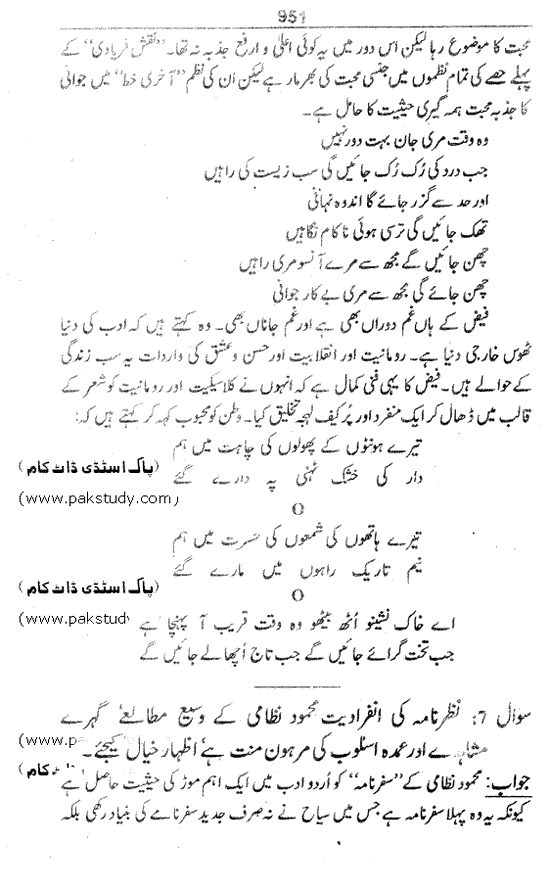 951
محبت کا موضوع رہا لیکن اس دور میں یہ کوئی اعلیٰ و ارفع جذبہ نہ تھا۔ ’’نقش فریادی‘‘ کے
پہلے حصے کی تمام نظموں میں جنسی محبت کی بھرمار ہے لیکن ان کی نظم ’’آخری خط‘‘ میں جوانی
کا جذبہ محبت ہمہ گیری حیثیت کا حامل ہے۔
وہ وقت مری جان بہت دور نہیں
جب درد کی رُک رُک جائیں گی سب زیست کی راہیں
اور حد سے گزر جائے گا اندوہ نہانی
تھک جائیں گی ترسی ہوئی ناکام نگاہیں
چھن جائیں گے مجھ سے مرے آنسو مری راہیں
چھن جائے گی مجھ سے مری بے کار جوانی
فیض کے ہاں غم دوراں بھی ہے اور غم جاناں بھی۔ وہ کہتے ہیں کہ ادب کی دنیا
ٹھوس خارجی دنیا ہے۔ رومانیت اور انقلابیت اور حسن و عشق کی واردات یہ سب زندگی
کے حوالے ہیں۔ فیض کا یہی فنی کمال ہے کہ انہوں نے کلاسیکیت اور رومانیت کو شعر کے
قالب میں ڈھال کر ایک منفرد اور پرکیف لہجہ تخلیق کیا۔ وطن کو محبوب کہہ کر کہتے ہیں کہ:
تیرے ہونٹوں کے پھولوں کی چاہت میں ہم
دار کی خشک ٹہنی پہ وارے گئے
(پاک اسٹڈی ڈاٹ کام)
(www.pakstudy.com)
O
تیرے ہاتھوں کی شمعوں کی حسرت میں ہم
نیم تاریک راہوں میں مارے گئے
(پاک اسٹڈی ڈاٹ کام)
O
اے خاک نشینو اُٹھ بیٹھو وہ وقت قریب آ پہنچا ہے
(www.pakstudy
جب تخت گرائے جائیں گے جب تاج اُچھالے جائیں گے
سوال 7: نظرنامہ کی انفرادیت محمود نظامی کے وسیع مطالعے گہرے
مشاہدے اور عمدہ اسلوب کی مرہون منت ہے اظہار خیال کیجئے۔
(www.p
جواب: محمود نظامی کے ’’سفرنامہ‘‘ کو اُردو ادب میں ایک اہم موڑ کی حیثیت حاصل ہے
ٹ کام)
کیونکہ یہ وہ پہلا سفرنامہ ہے جس میں سیاح نے نہ صرف جدید سفرنامے کی بنیاد رکھی بلکہ